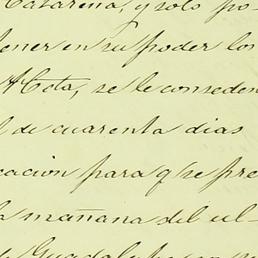 Catarina, y solo po-
tener en su poder los
Acta, se le conseden
l de cuarenta dias
cacion para q se pre
la mañana del ul-
Guadalupe